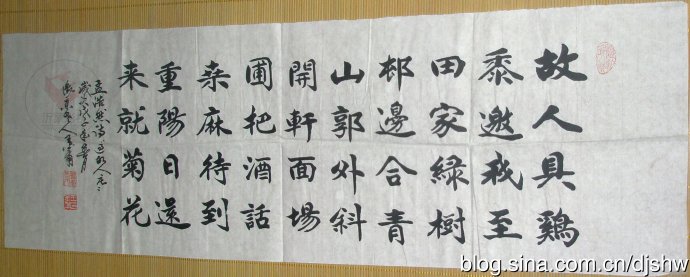 故人具鷄
黍邀我至
田家緑樹
邨邊合青
山郭外斜
開軒面場
圃把酒話
桒麻待到
重陽日還
来就菊花
孟浩然詩
歲次戊子年
blog.sina.com.cn/djshw